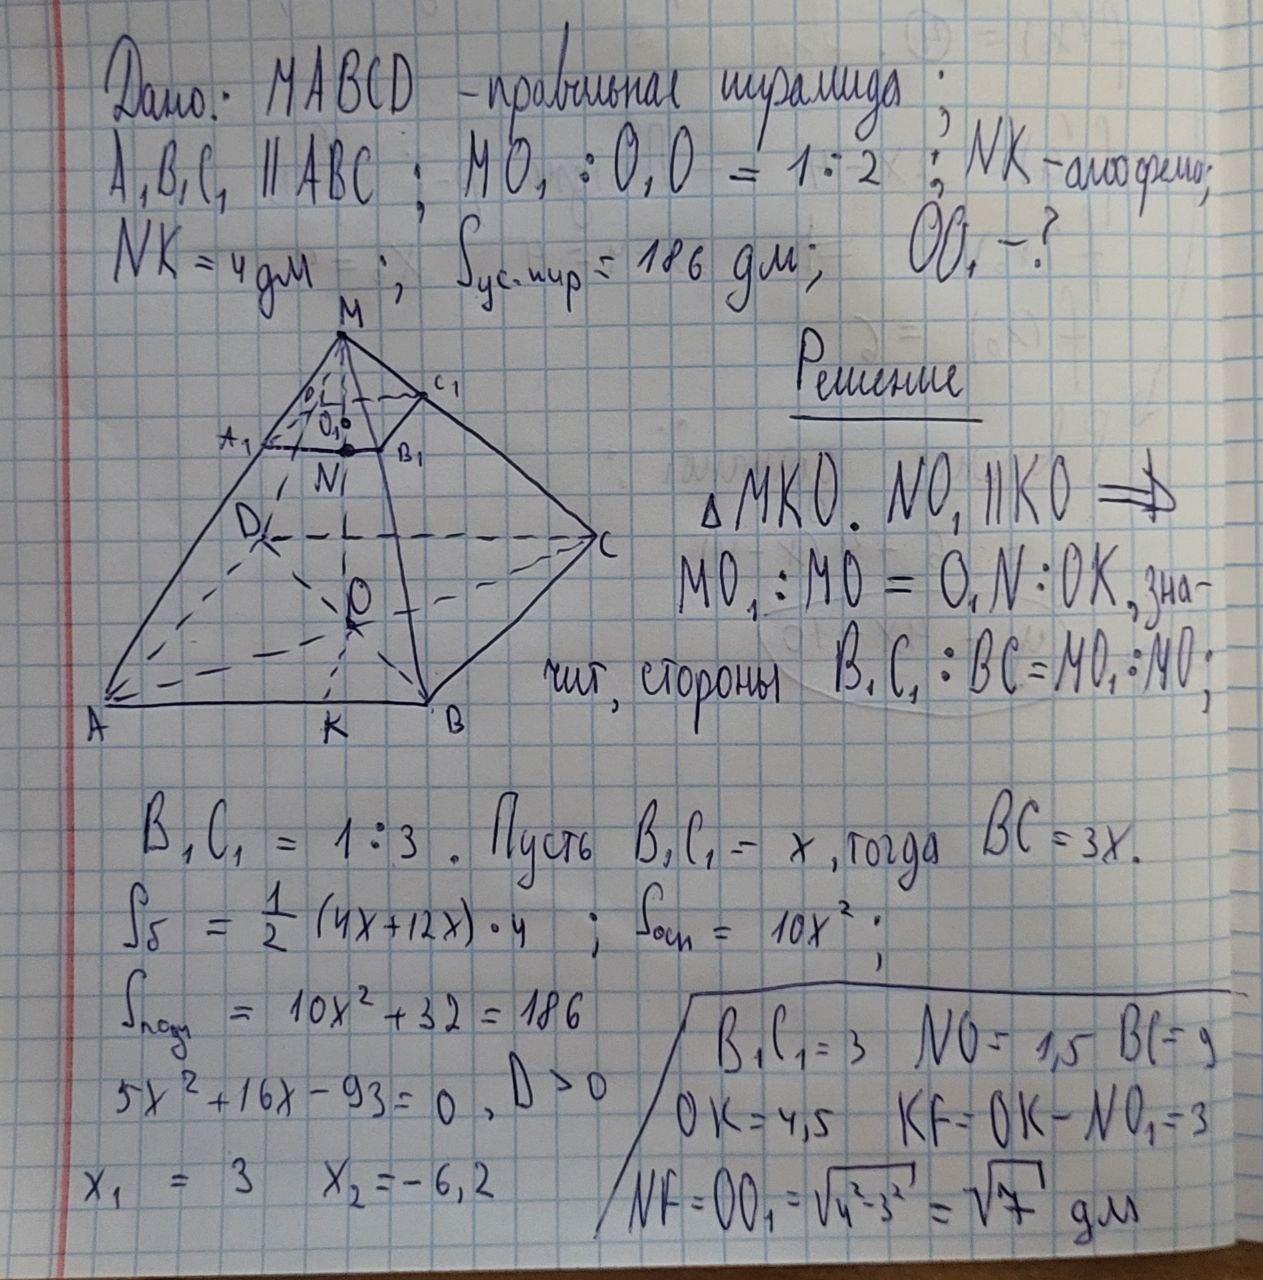 Дано: MABCD - правильная пирамида;
A₁B₁C₁ || ABC ; MO₁ : O₁O = 1 : 2 ; NK - апофема;
NK = 4 дм ; Sус.пир = 186 дм; OO₁ - ?
M
C₁
A₁
O₁
B₁
N
D
C
O
A
K
B
Решение
△ MKO. NO₁ || KO ⇒
MO₁ : MO = O₁N : OK, зна-
чит, стороны B₁C₁ : BC = MO₁ : MO;
B₁C₁ = 1 : 3 . Пусть B₁C₁ = x, тогда BC = 3x.
Sб = 1/2 (4x+12x) · 4 ; Sосн = 10x² ;
Sполн = 10x² + 32 = 186
5x² + 16x - 93 = 0 , D > 0
x₁ = 3 x₂ = -6,2
B₁C₁ = 3 NO = 1,5 BC = 9
OK = 4,5 KF = OK - NO₁ = 3
NF = OO₁ = √4²-3² = √7 дм